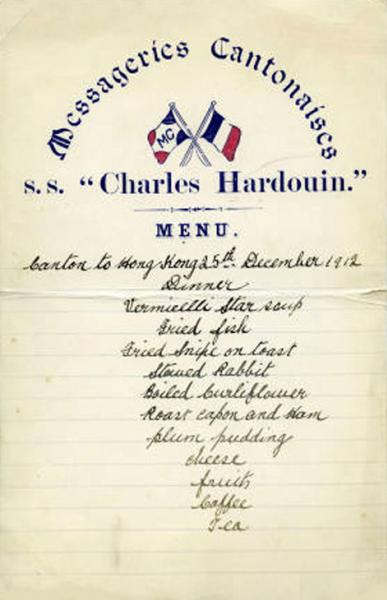 Messageries Cantonaises
MC
s.s. "Charles Hardouin."
MENU.
Canton to Hong Kong 25th December 1912
Dinner
Vermicelli Star soup
Fried fish
Fried Snipe on toast
Stewed Rabbit
Boiled Curliflower
Roast capon and Ham
plum pudding
cheese
fruits
Coffee
Tea